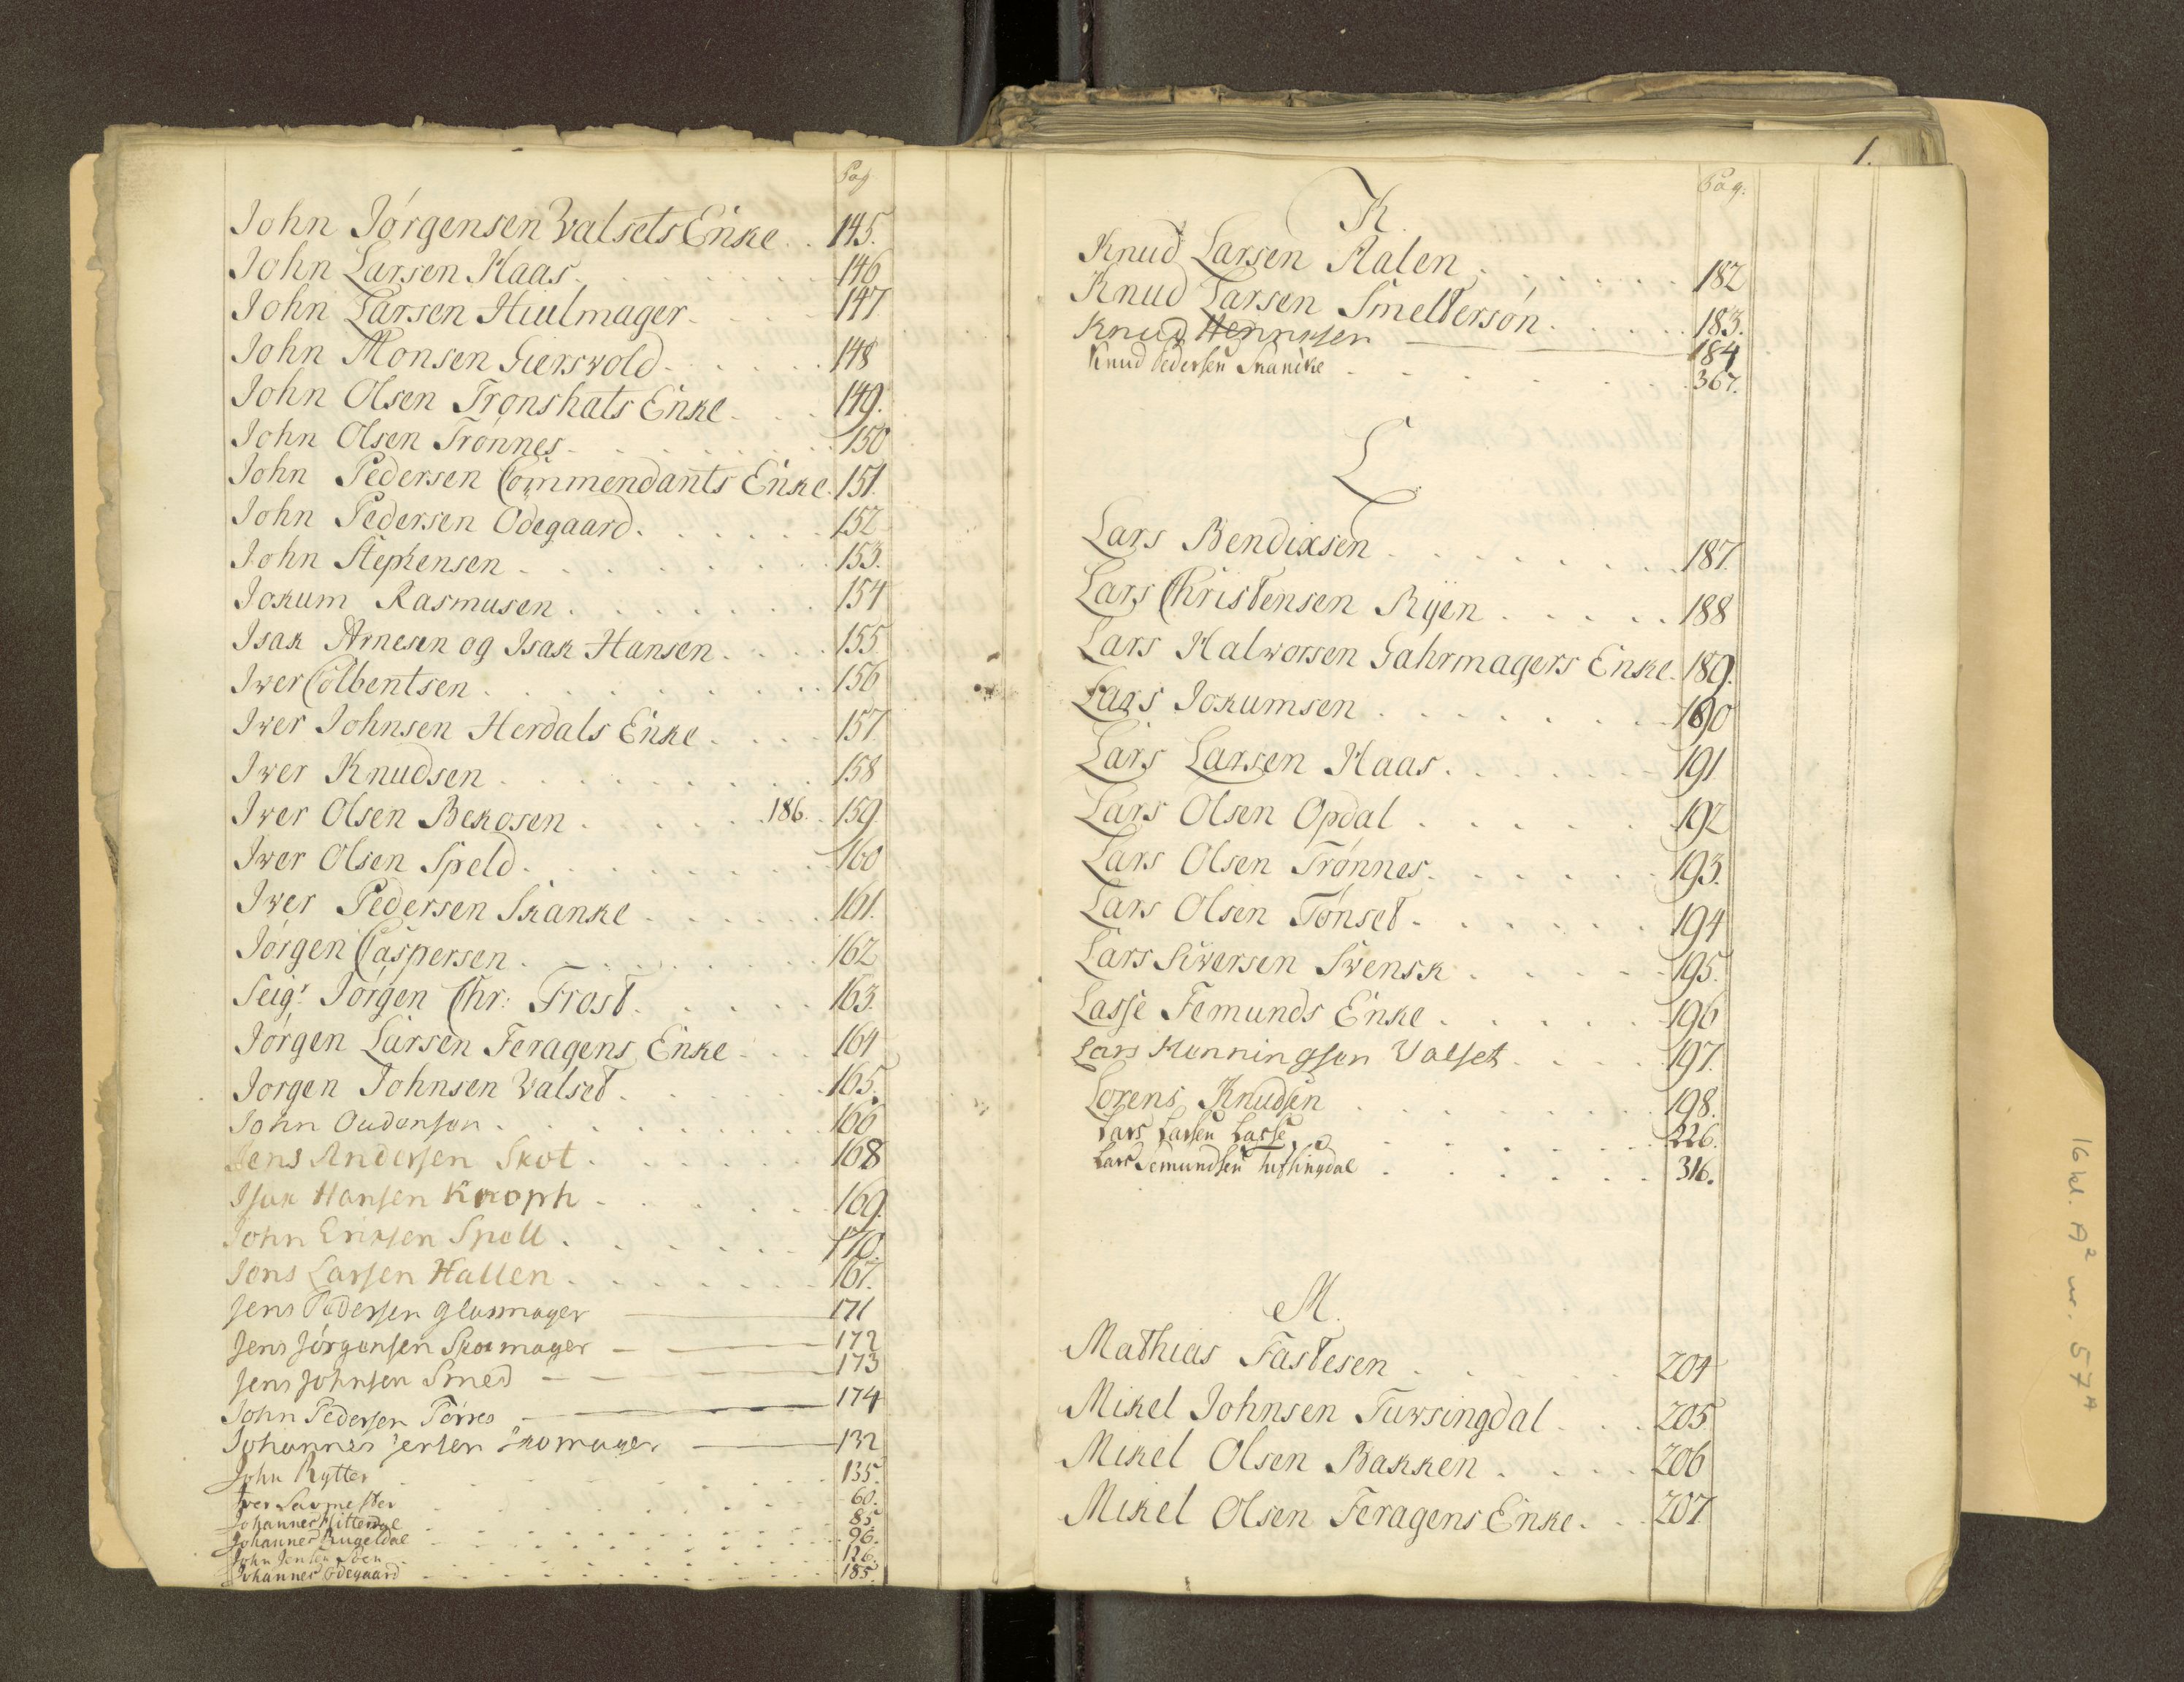 Pag
John Jörgensen Valsets Enke . . 145.
John Larsen Haas . . . 146
John Larsen Hiulmager . . . 147
John Monsen Giersvold . . . 148
John Olsen Tronshats Enke . . . 149.
John Olsen Trönnes . . . 150
John Pedersen Commendants Enke . 151.
John Pedersen Ödegaard . . . 152
John Stephensen . . . 153.
Jokum Rasmusen . . . 154
Isak Arnesen og Isak Hansen . . . 155
Iver Colbentsen . . . 156
Iver Johnsen Herdals Enke . . . 157
Iver Knudsen . . . 158
Iver Olsen Bekosen . . . 186. . 159.
Iver Olsen Speld . . . 160
Iver Pedersen Skanke . . . 161.
Jörgen Caspersen . . . 162
Seigr. Jörgen Chr: Frost . . . 163.
Jörgen Larsen Feragens Enke . . . 164
Jorgen Johnsen Valset . . . 165.
John Oudensen . . . 166
Jens Andersen Skot . . . 168
Isak Hansen Kroph . . . 169.
John Eriksen Spell . . . 170.
Jons Larsen Hallen . . . 167.
Jens Pedersen Glasmager — 171
Jens Jörgensen Skomager — 172
Jens Johnsen Smed — 173
John Pedersen Törres — 174
Johannes Jensen Skomager — 132
John Rytter . . . 135.
Iver Savmester . . . 60.
Johannes Hitterdal . . . 85
Johannes Rugeldal . . . 96.
John Jensen . . . 126.
Johannes Ödegaard . . . 185.
1.
Pag.
K.
Knud Larsen Aalen . . . 182
Knud Larsen Smeltersön . . . 183.
Knud Henriksen — 184
Knud Pedersen Skancke . . . 367.
L.
Lars Bendixsen . . . 187.
Lars Christensen Ryen . . . 188
Lars Halvorsen Gahrmagers Enke . 189.
Lars Jokumsen . . . 190
Lars Larsen Haas . . . 191
Lars Olsen Opdal . . . 192
Lars Olsen Trönnes . . . 193.
Lars Olsen Tönset . . . 194
Lars Siversen Svensk . . . 195.
Lasse Femunds Enke . . . 196
Lars Henningsen Valset . . . 197.
Lorens Knudsen . . . 198.
Lars Larsen Lasse . . . 226.
Lars Semundsen Tufsingdal . . . 316.
M.
Mathias Fastesen . . . 204
Mikel Johnsen Tuvsingdal . . . 205
Mikel Olsen Bakken . . . 206
Mikel Olsen Feragens Enke . . . 207
16 kl. A2 nr. 57A